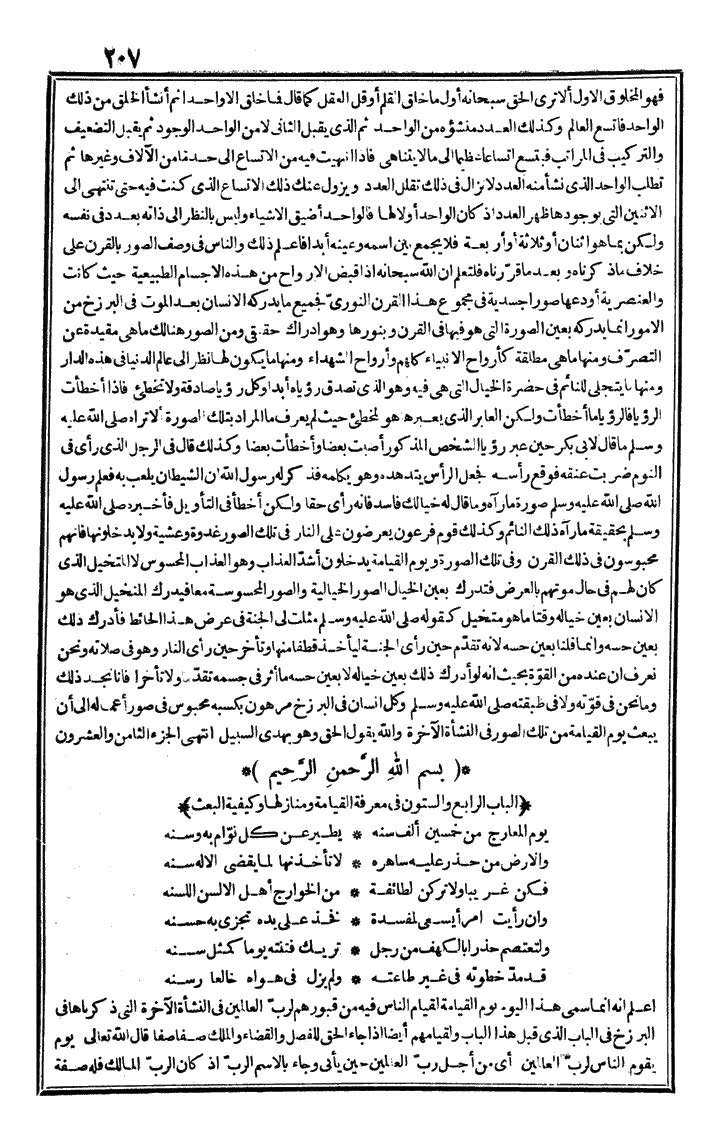 ٢٠٧
فهو المخلوق الاول ألا ترى الحق سبحانه أول ما خلق القلم أو قل العقل كما قال فما خلق الا واحدا ثم أنشأ الخلق من ذلك
الواحد فاتسع العالم وكذلك العدد منشؤه من الواحد ثم الذى يقبل الثانى لا من الواحد الوجود ثم يقبل التضعيف
والتركيب فى المراتب فيتسع اتساعا عظيما الى ما لا يتناهى فاذا انتهيت فيه من الاتساع الى حد ما من الآلاف وغيرها ثم
تطلب الواحد الذى نشأ منه العدد لا تزال فى ذلك تقلل العدد ويزول عنك ذلك الاتساع الذى كنت فيه حتى تنتهى الى
الاثنين التى بوجودها ظهر العدد اذ كان الواحد أولا لها فالواحد أضيق الاشياء وليس بالنظر الى ذاته بعدد فى نفسه
ولكن بما هو اثنان أو ثلاثة أو أربعة فلا يجمع بين اسمه وعينه أبدا فاعلم ذلك والناس فى وصف الصور بالقرن على
خلاف ما ذكرناه وبعد ما قررناه فلتعلم ان الله سبحانه اذا قبض الارواح من هذه الاجسام الطبيعية حيث كانت
والعنصرية أودعها صورا جسدية فى مجموع هذا القرن النورىّ فجميع ما يدركه الانسان بعد الموت فى البرزخ من
الامور انما يدركه بعين الصورة التى هو فيها فى القرن وبنورها وهو ادراك حقيقى ومن الصور هنالك ما هى مقيدة عن
التصرّف ومنها ما هى مطلقة كأرواح الانبياء كلهم وأرواح الشهداء ومنها ما يكون لها نظر الى عالم الدنيا فى هذه الدار
ومنها ما يتجلى للنائم فى حضرة الخيال التى هى فيه وهو الذى تصدق رؤياه أبدا وكل رؤيا صادقة ولا تخطئ فاذا أخطأت
الرؤيا فالرؤيا ما أخطأت ولكن العابر الذى يعبرها هو المخطئ حيث لم يعرف ما المراد بتلك الصورة ألا تراه صلى الله عليه
وسلم ما قال لابى بكر حين عبر رؤيا الشخص المذكور أصبت بعضا وأخطأت بعضا وكذلك قال فى الرجل الذى رأى فى
النوم ضربت عنقه فوقع رأسه فجعل الرأس يتدهده وهو يكلمه فذكر له رسول الله ان الشيطان يلعب به فعلم رسول
الله صلى الله عليه وسلم صورة ما رآه وما قال له خيالك فاسد فانه رأى حقا ولكن أخطأ فى التأويل فأخبره صلى الله عليه
وسلم بحقيقة ما رآه ذلك النائم وكذلك قوم فرعون يعرضون على النار فى تلك الصور غدوة وعشية ولا يدخلونها فانهم
محبوسون فى ذلك القرن وفى تلك الصورة ويوم القيامة يدخلون أشدّ العذاب وهو العذاب المحسوس لا المتخيل الذى
كان لهم فى حال موتهم بالعرض فتدرك بعين الخيال الصور الخيالية والصور المحسوسة معا فيدرك المتخيل الذى هو
الانسان بعين خياله وقتا ما هو متخيل كقوله صلى الله عليه وسلم مثلت لى الجنة فى عرض هذا الحائط فأدرك ذلك
بعين حسه وانما قلنا بعين حسه لانه تقدّم حين رأى الجنة ليأخذ قطفا منها وتأخر حين رأى النار وهو فى صلاته ونحن
نعرف ان عنده من القوّة بحيث انه لو أدرك ذلك بعين خياله لا بعين حسه ما أثر فى جسمه تقدّما ولا تأخرا فانا نجد ذلك
وما نحن فى قوّته ولا فى طبقته صلى الله عليه وسلم وكل انسان فى البرزخ مرهون بكسبه محبوس فى صور أعماله الى أن
يبعث يوم القيامة من تلك الصور فى النشأة الآخرة والله يقول الحق وهو يهدى السبيل انتهى الجزء الثامن والعشرون
*( بسم الله الرَّحمنِ الرَّحيم )*
﴿الباب الرابع والستون فى معرفة القيامة ومنازلها وكيفية البعث﴾
يوم المعارج من خمسين ألف سنه * يطير عن كل نوّام به وسنه
والارض من حذر عليه ساهره * لا تأخذنها لما يقضى الاله سنه
فكن غريبا ولا تركن لطائفة * من الخوارج أهل الالسن اللسنه
وان رأيت امرأ يسعى لمفسدة * فخذ على يده تجزى به حسنه
ولتعتصم حذرا بالكهف من رجل * تريك فتنته يوما كمثل سنه
قد مدّ خطوته فى غير طاعته * ولم يزل فى هواه خالعا رسنه
اعلم انه انما سمى هذا اليوم يوم القيامة لقيام الناس فيه من قبورهم لرب العالمين فى النشأة الآخرة التى ذكرناها فى
البرزخ فى الباب الذى قبل هذا الباب ولقيامهم أيضا اذا جاء الحق للفصل والقضاء والملك صفا صفا قال الله تعالى يوم
يقوم الناس لرب العالمين أى من أجل ربّ العالمين حين يأتى وجاء بالاسم الربّ اذ كان الربّ المالك فله صفة